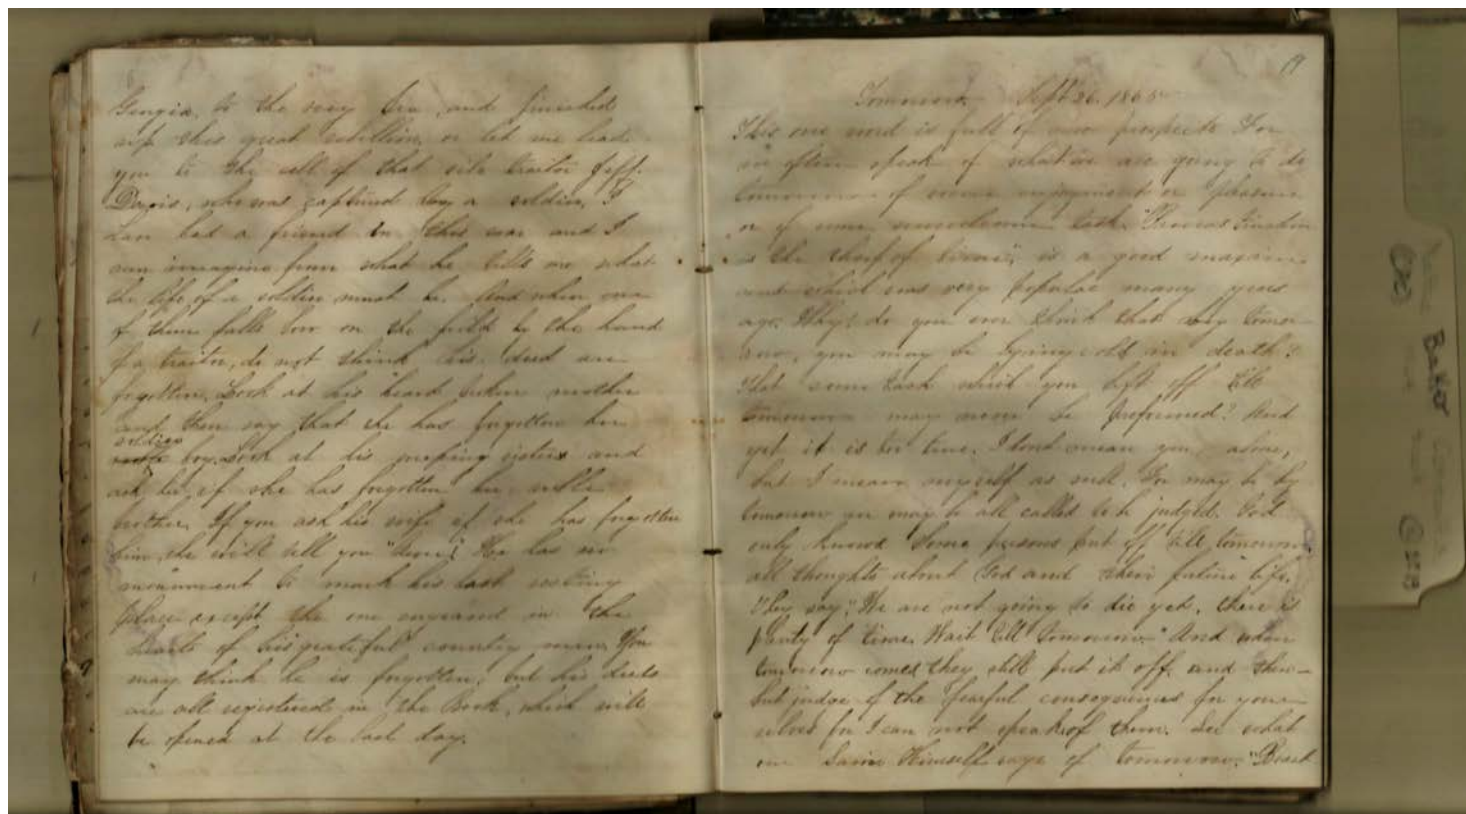 Georgia, to the very Sea, and finished
up this great rebellion, or let me lead
you to the cell of that vile traitor Jeff.
Davis, who was captured by a soldier. I
have had a friend in this war and I
can imagine from what he tells me what
the life of a soldier must be. And when one
of them falls low on the field by the hand
of a traitor, do not think his deed are
forgotten. Look at his heart broken mother
and then say that she has forgotten her
soldier
boy. Look at his weeping sisters and
ask her, if she has forgotten her noble
brother. If you ask his wife if she has forgotten
him, she will tell you "never." He has no
monument to mark his last resting
place except the one engraved in the
hearts of his grateful country men. You
may think he is forgotten, but his deeds
are all registered in the Book, which will
be opened at the last day.
19
Tomorrow. Sept 26. 1865
This one word is full of new prospects. For
we often speak of what we are going to do
tomorrow of some enjoyment or pleasure
or of some unwelcome task. "Procrastination
is the thief of time," is a good maxim
and which was very popular many years
ago. Why! do you ever think that by tomor-
row, you may be lying cold in death?
That some task which you left off till
tomorrow may never be performed? And
yet it is too true. I dont mean you, alone,
but I mean myself as well. For may be by
tomorrow we may be all called to be judged. God
only knows. Some persons put off till tomorrow
all thoughts about God and their future life.
They say; "We are not going to die yet, there is
plenty of time. Wait till tomorrow." And when
tomorrow comes they still put it off. and then—
but judge of the fearful consequences for your-
selves for I can not speak of them. See what
our Savior Himself says of tomorrow. "Boast
Baker